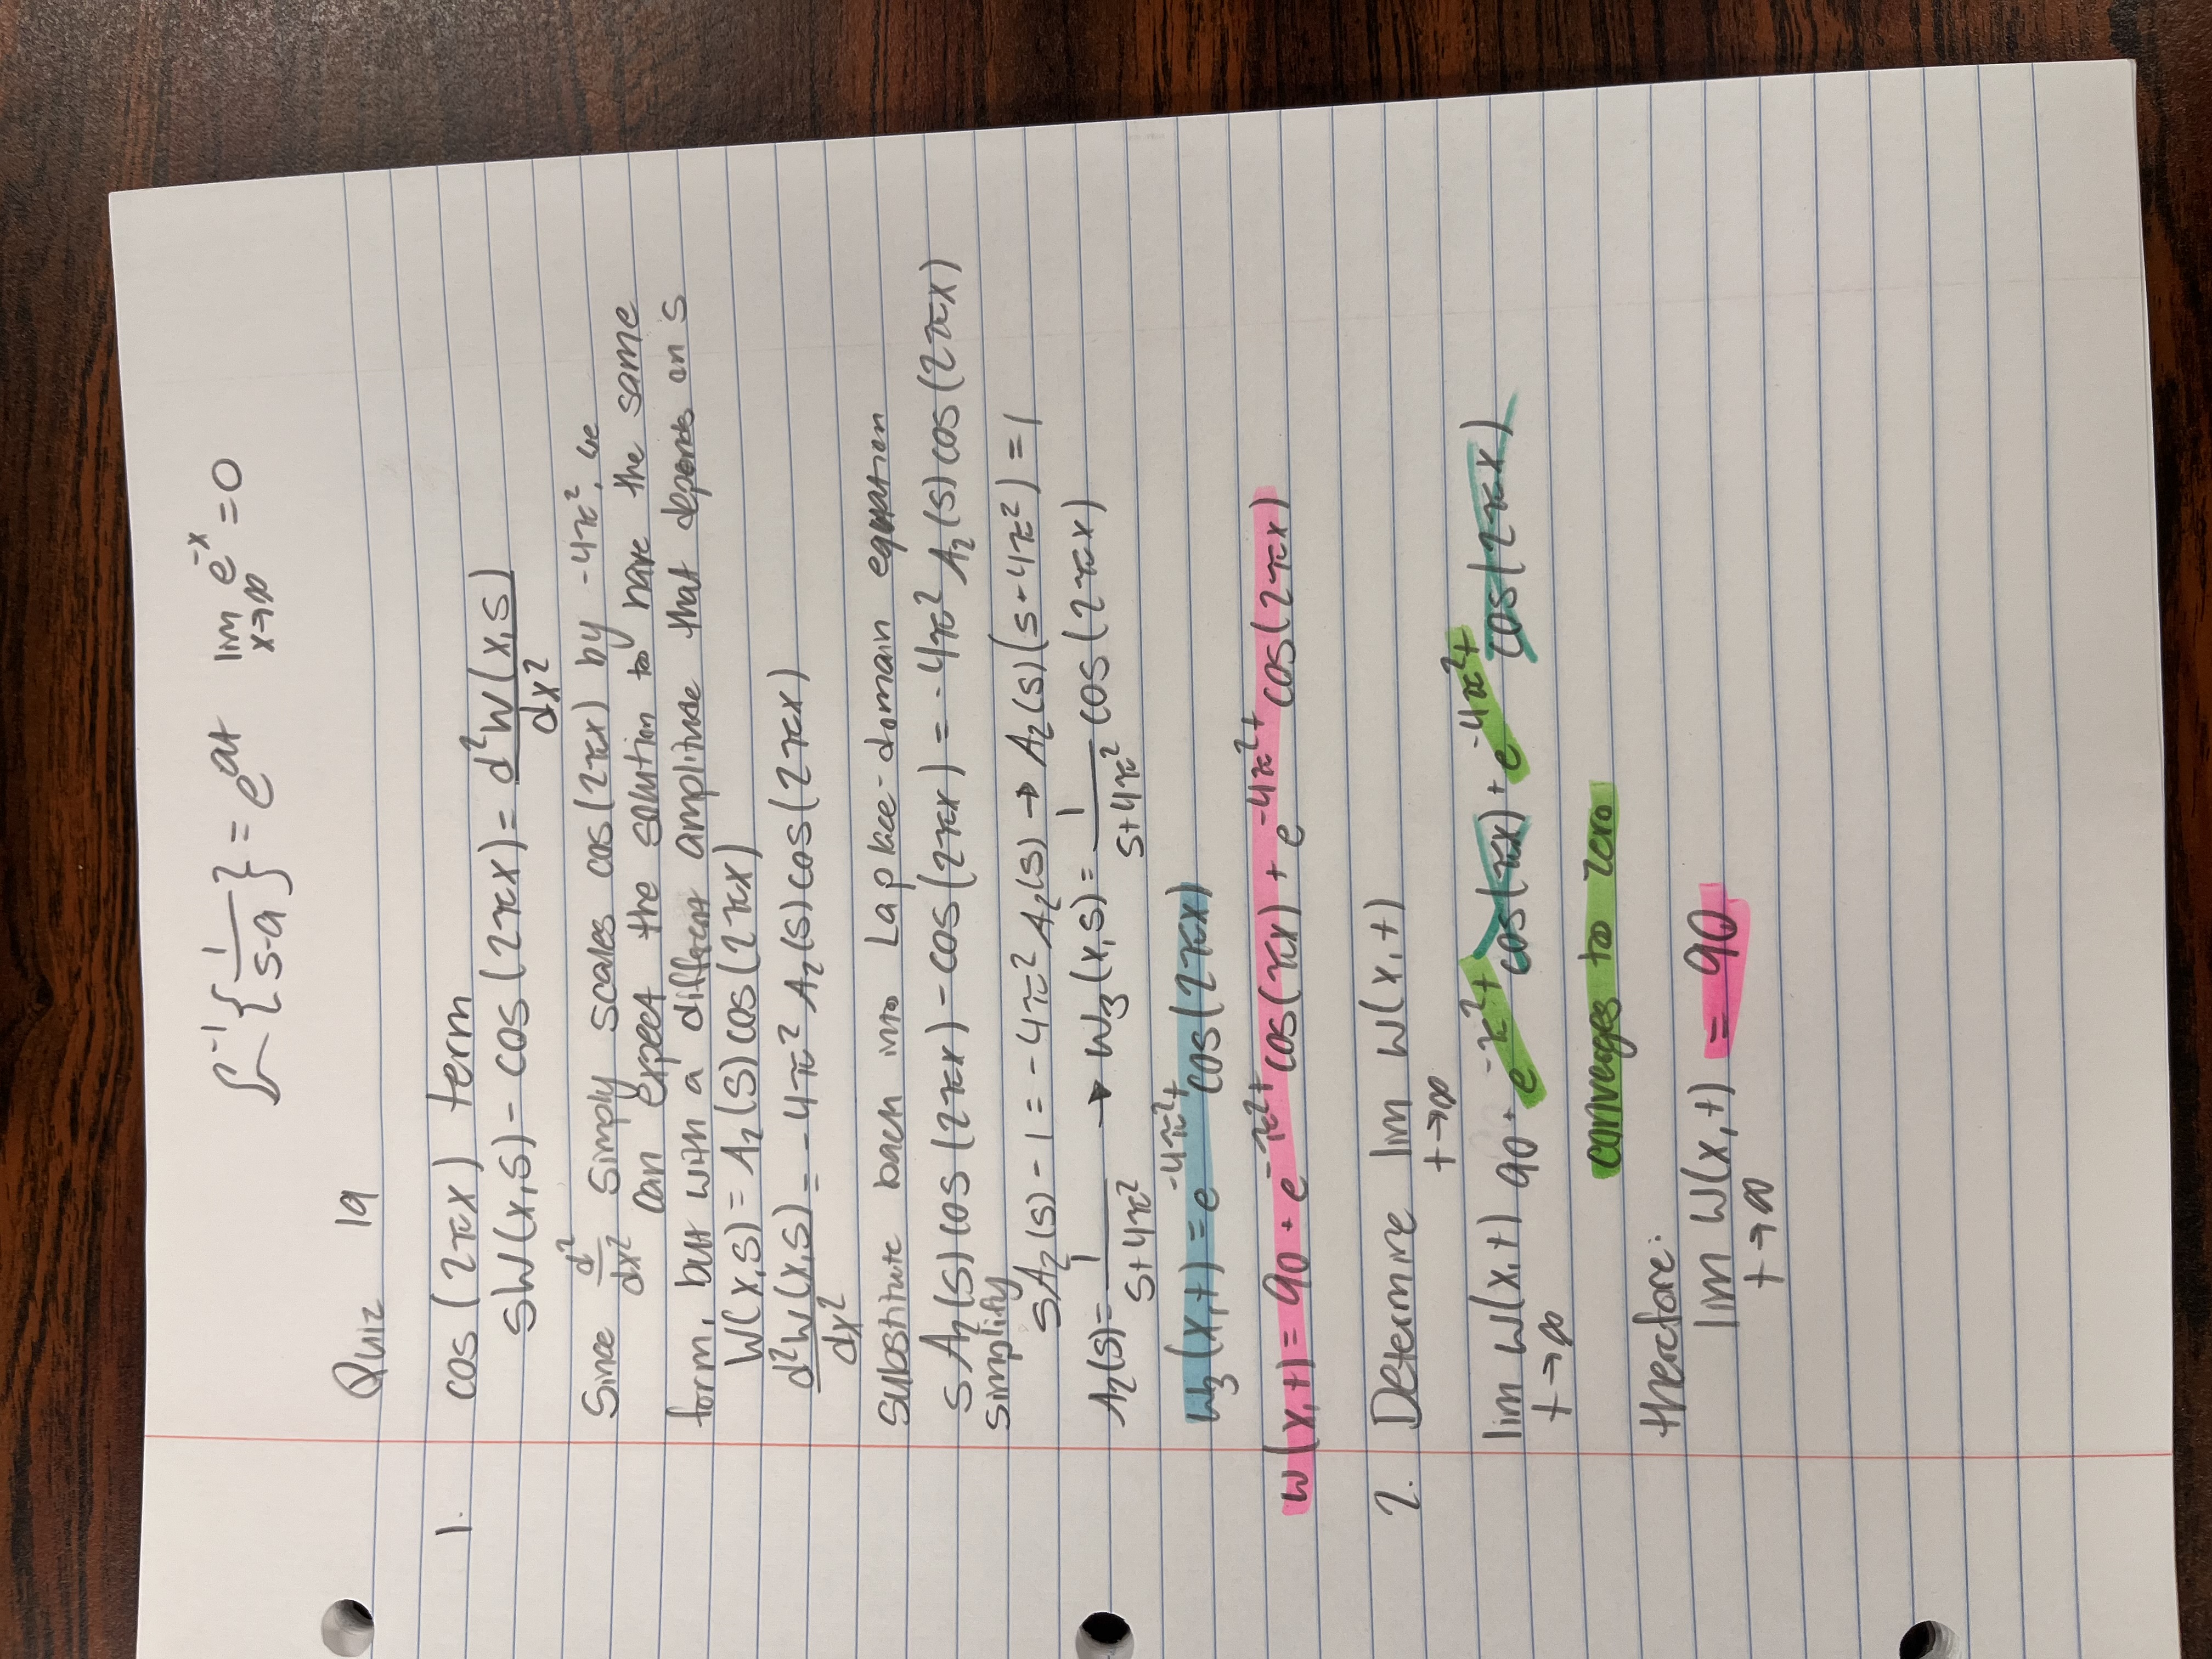 ℒ⁻¹{1/(s-a)} = e^(at)   lim x→∞ e^(-x) = 0
Quiz 19
1. cos(2πx) term
sW(x,s) - cos(2πx) = d²W(x,s)/dx²
Since d²/dx² simply scales cos(2πx) by -4π², we
can expect the solution to have the same
form, but with a different amplitude that depends on s
W(x,s) = A₂(s) cos(2πx)
d²W(x,s)/dx² = -4π² A₂(s) cos(2πx)
substitute back into Laplace-domain equation
sA₂(s) cos(2πx) - cos(2πx) = -4π² A₂(s) cos(2πx)
simplify
sA₂(s) - 1 = -4π² A₂(s) → A₂(s)(s+4π²) = 1
A₂(s) = 1/(s+4π²) → W₃(x,s) = 1/(s+4π²) cos(2πx)
W₃(x,t) = e^(-4π²t) cos(2πx)
w(x,t) = 90 + e^(-π²t) cos(πx) + e^(-4π²t) cos(2πx)
2. Determine lim t→∞ W(x,t)
lim t→∞ W(x,t) 90 + e^(-π²t) cos(πx) + e^(-4π²t) cos(2πx)
converges to zero
therefore:
lim t→∞ W(x,t) = 90